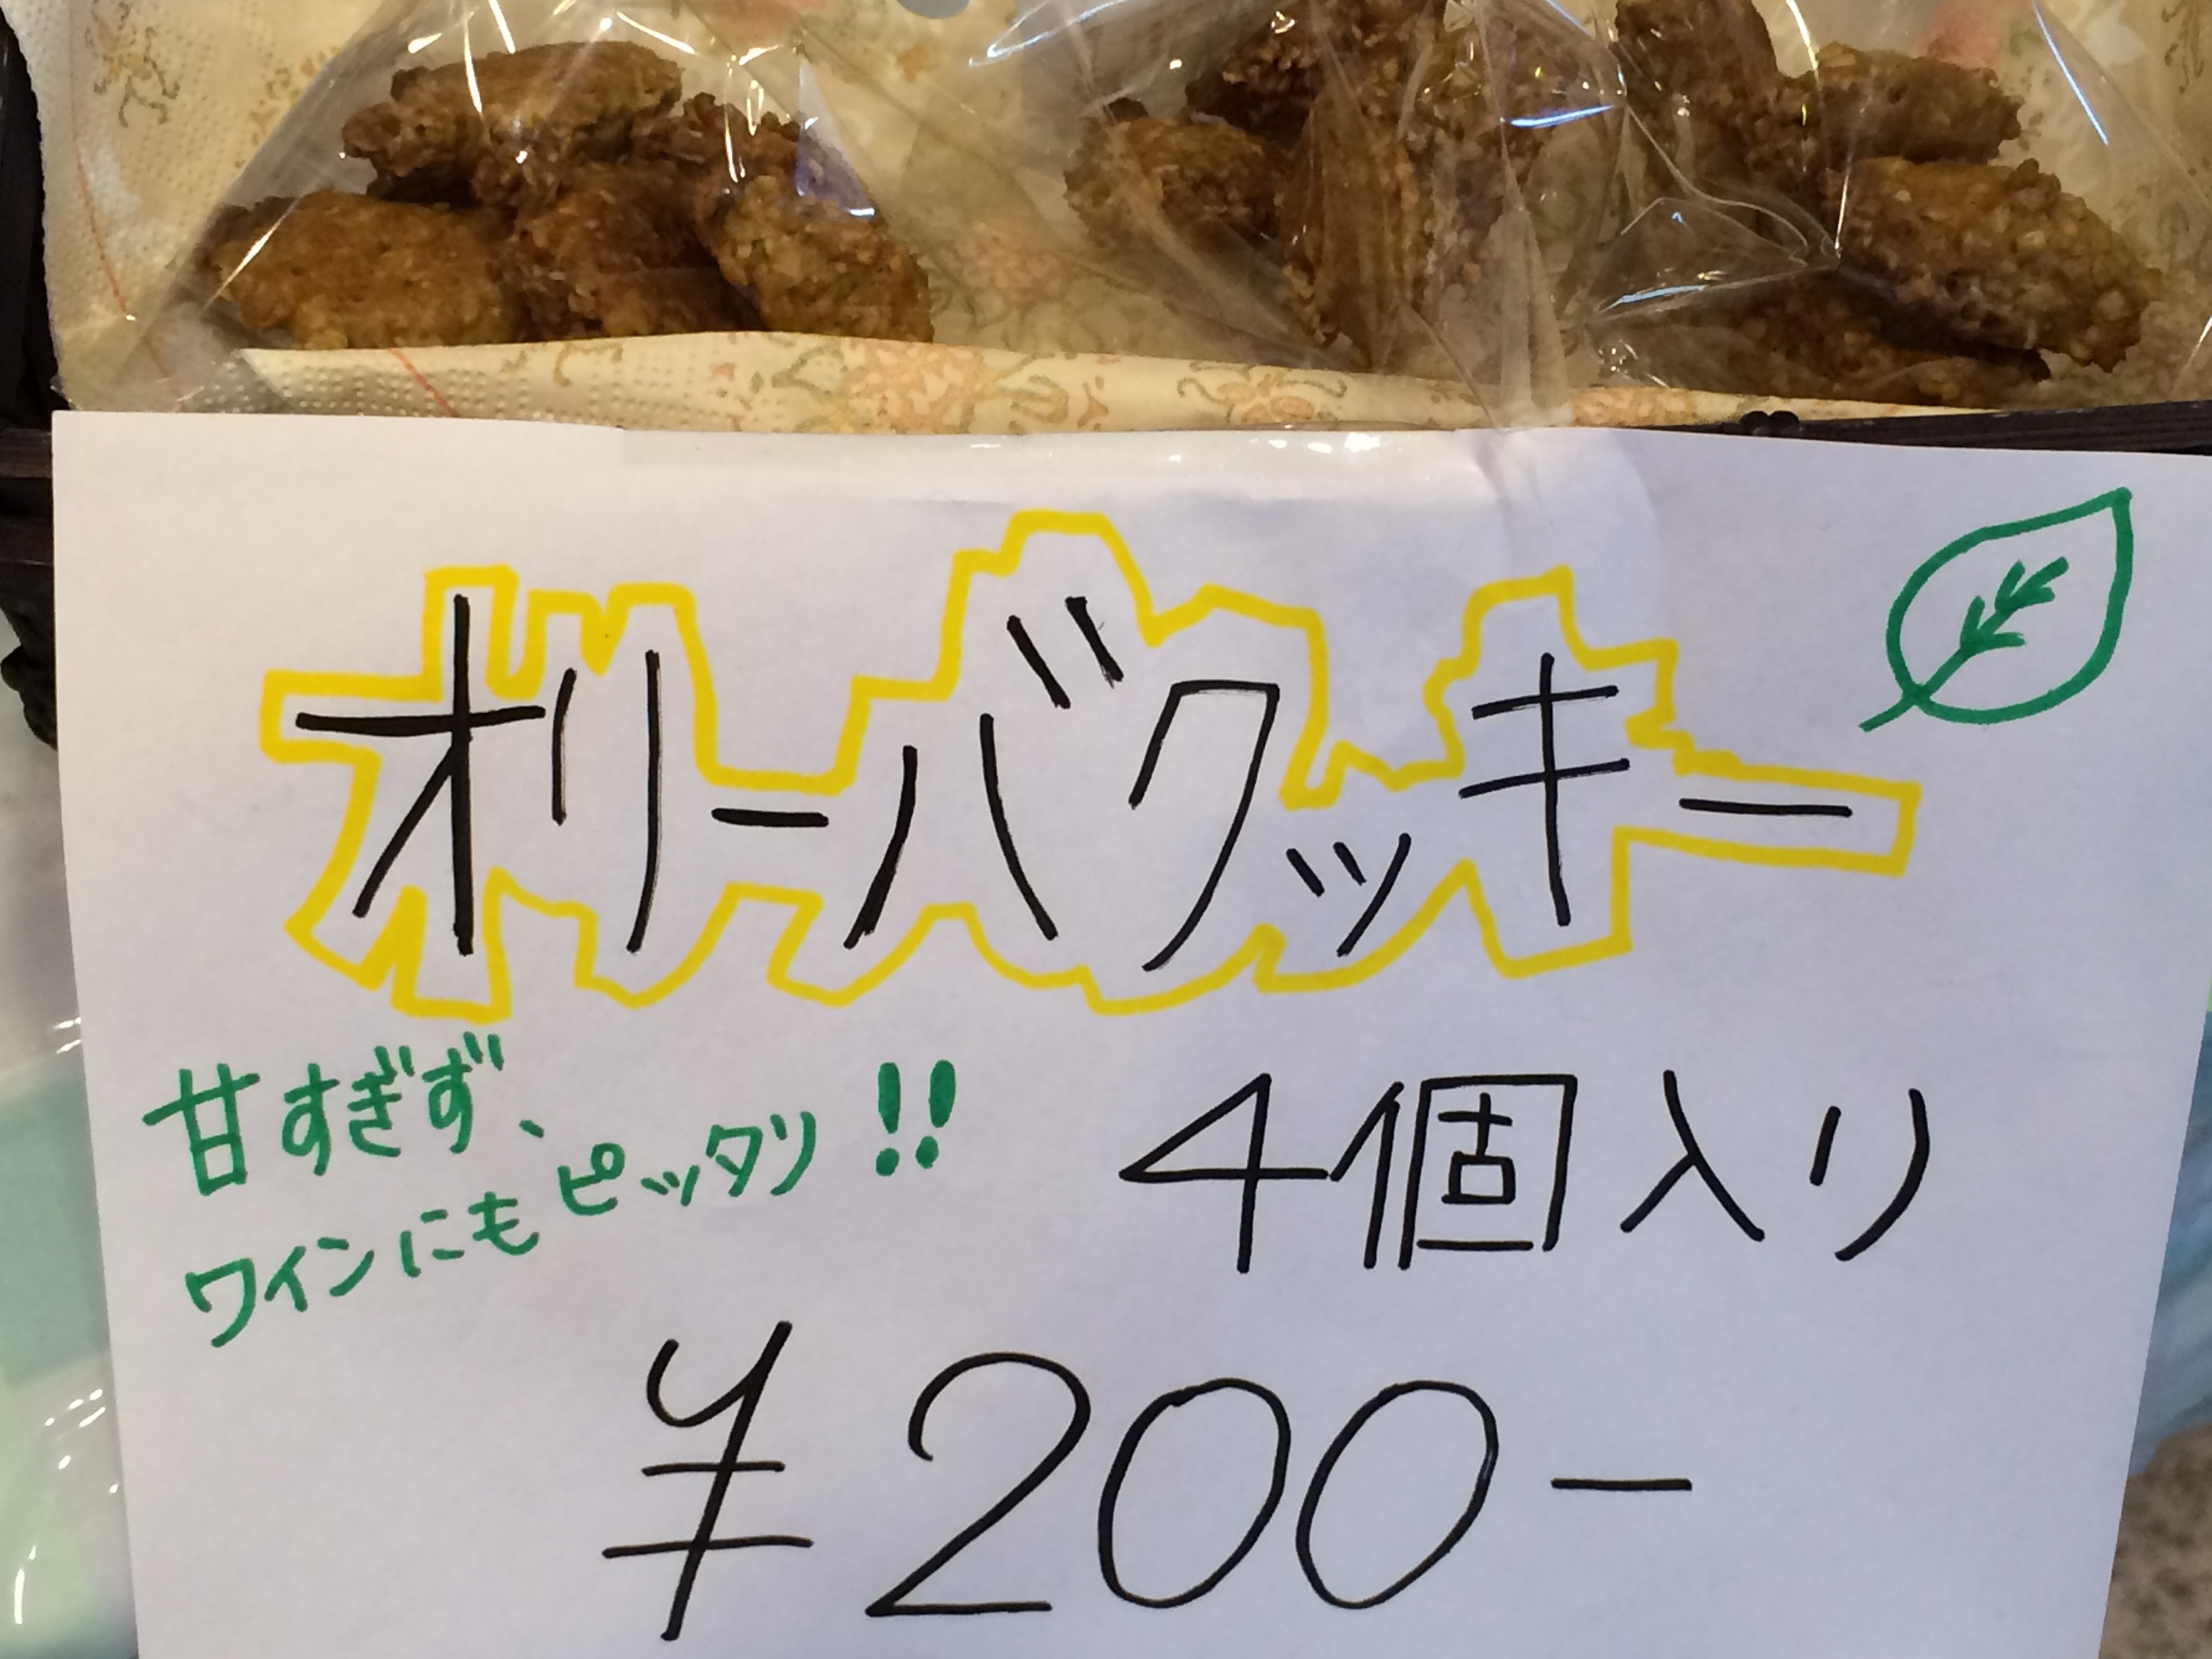 オリーバクッキー
甘すぎず、
ワインにもピッタリ!!
4個入り
¥200-